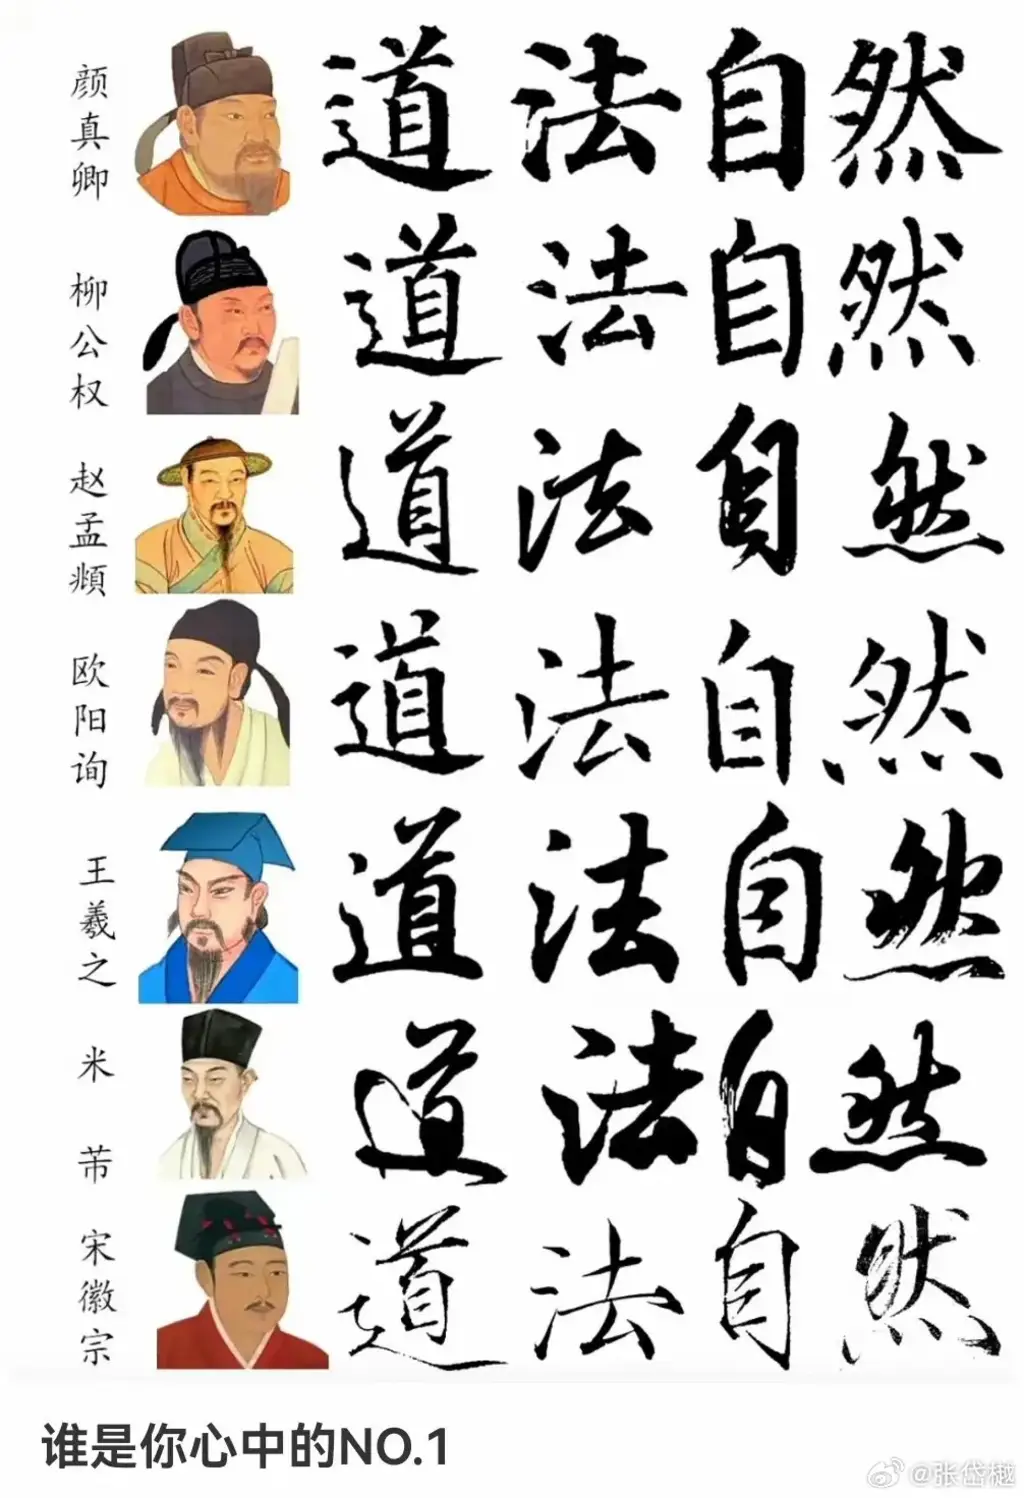 颜真卿 道法自然
柳公权 道法自然
赵孟頫 道法自然
欧阳询 道法自然
王羲之 道法自然
米芾 道法自然
宋徽宗 道法自然
谁是你心中的NO.1
@张岱樾